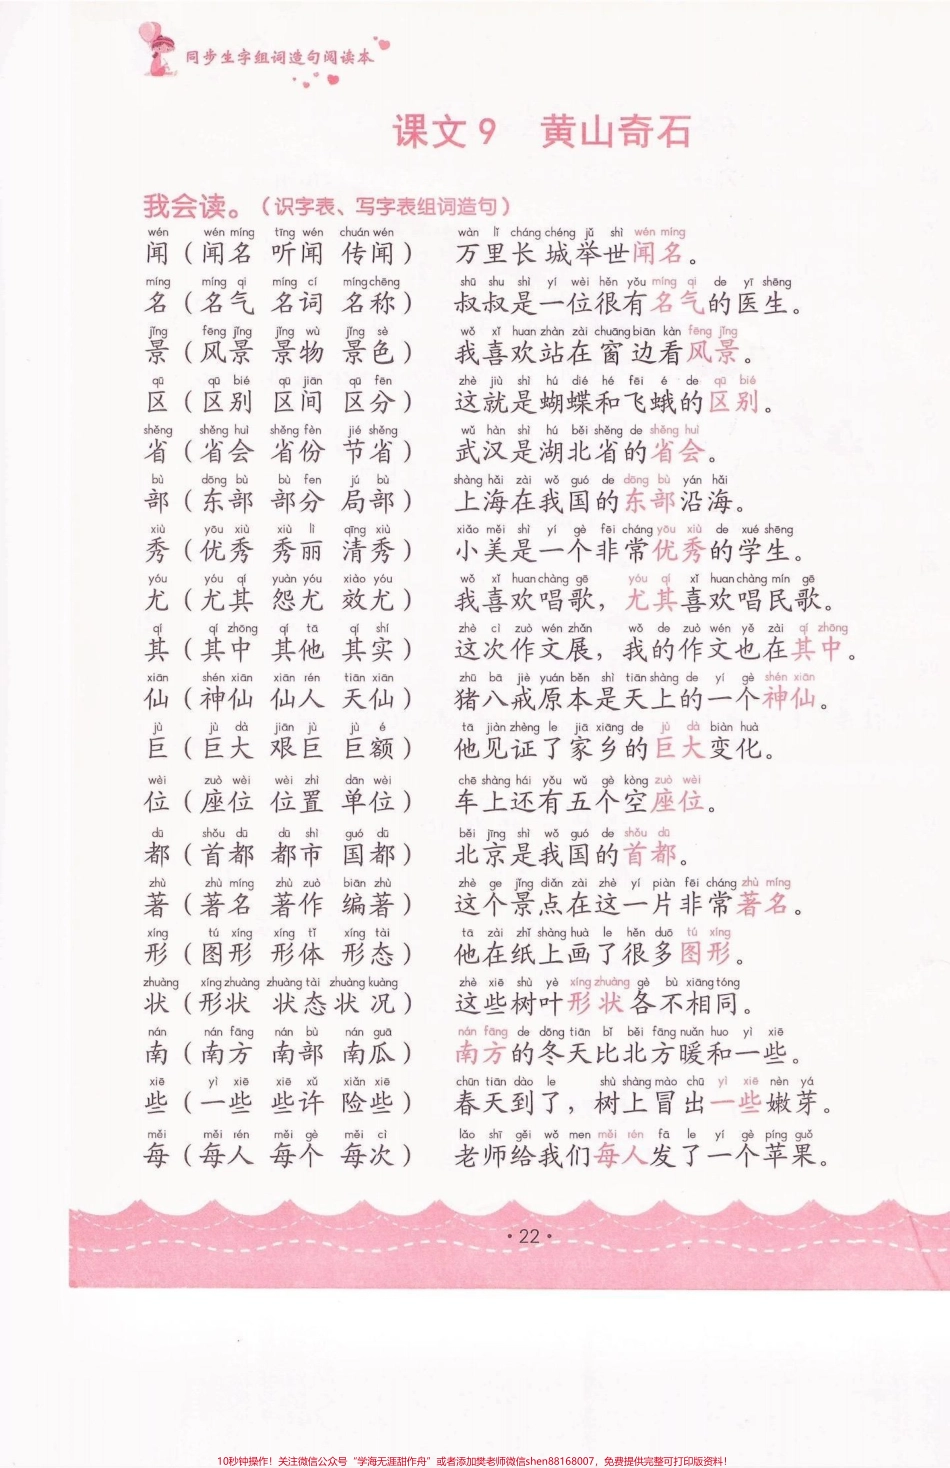 同步生字组词造句阅读本
课文9 黄山奇石
我会读。(识字表、写字表组词造句)
wén wén míng tīng wén chuán wén wàn lǐ cháng chéng jǔ shì wén míng
闻(闻名 听闻 传闻) 万里长城举世闻名。
míng míng qi míng cí míng chēng shū shu shì yí wèi hěn yǒu míng qi de yī shēng
名(名气 名词 名称) 叔叔是一位很有名气的医生。
jǐng fēng jǐng jǐng wù jǐng sè wǒ xǐ huan zhàn zài chuāng biān kàn fēng jǐng
景(风景 景物 景色) 我喜欢站在窗边看风景。
qū qū bié qū jiān qū fēn zhè jiù shì hú dié hé fēi é de qū bié
区(区别 区间 区分) 这就是蝴蝶和飞蛾的区别。
shěng shěng huì shěng fèn jié shěng wǔ hàn shì hú běi shěng de shěng huì
省(省会 省份 节省) 武汉是湖北省的省会。
bù dōng bù bù fen jú bù shàng hǎi zài wǒ guó de dōng bù yán hǎi
部(东部 部分 局部) 上海在我国的东部沿海。
xiù yōu xiù xiù lì qīng xiù xiǎo měi shì yí gè fēi cháng yōu xiù de xué shēng
秀(优秀 秀丽 清秀) 小美是一个非常优秀的学生。
yóu yóu qí yuàn yóu xiào yóu wǒ xǐ huan chàng gē yóu qí xǐ huan chàng mín gē
尤(尤其 怨尤 效尤) 我喜欢唱歌，尤其喜欢唱民歌。
qí qí zhōng qí tā qí shí zhè cì zuò wén zhǎn wǒ de zuò wén yě zài qí zhōng
其(其中 其他 其实) 这次作文展，我的作文也在其中。
xiān shén xiān xiān rén tiān xiān zhū bā jiè yuán běn shì tiān shàng de yí gè shén xiān
仙(神仙 仙人 天仙) 猪八戒原本是天上的一个神仙。
jù jù dà jiān jù jù é tā jiàn zhèng le jiā xiāng de jù dà biàn huà
巨(巨大 艰巨 巨额) 他见证了家乡的巨大变化。
wèi zuò wèi wèi zhì dān wèi chē shàng hái yǒu wǔ gè kòng zuò wèi
位(座位 位置 单位) 车上还有五个空座位。
dū shǒu dū dū shì guó dū běi jīng shì wǒ guó de shǒu dū
都(首都 都市 国都) 北京是我国的首都。
zhù zhù míng zhù zuò biān zhù zhè ge jǐng diǎn zài zhè yí piàn fēi cháng zhù míng
著(著名 著作 编著) 这个景点在这一片非常著名。
xíng tú xíng xíng tǐ xíng tài tā zài zhǐ shàng huà le hěn duō tú xíng
形(图形 形体 形态) 他在纸上画了很多图形。
zhuàng xíng zhuàng zhuàng tài zhuàng kuàng zhè xiē shù yè xíng zhuàng gè bù xiāng tóng
状(形状 状态 状况) 这些树叶形状各不相同。
nán nán fāng nán bù nán guā nán fāng de dōng tiān bǐ běi fāng nuǎn huo yì xiē
南(南方 南部 南瓜) 南方的冬天比北方暖和一些。
xiē yì xiē xiē xǔ xiǎn xiē chūn tiān dào le shù shàng mào chū yì xiē nèn yá
些(一些 些许 险些) 春天到了，树上冒出一些嫩芽。
měi měi rén měi gè měi cì lǎo shī gěi wǒ men měi rén fā le yí gè píng guǒ
每(每人 每个 每次) 老师给我们每人发了一个苹果。
·22·
10秒钟操作！关注微信公众号“学海无涯甜作舟”或者添加樊老师微信shen88168007，免费提供完整可打印版资料！